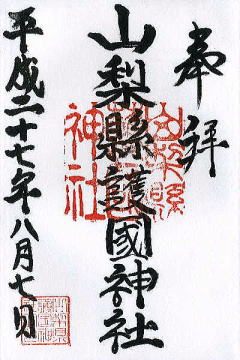 奉拝
山梨縣護國神社
平成二十七年八月七日